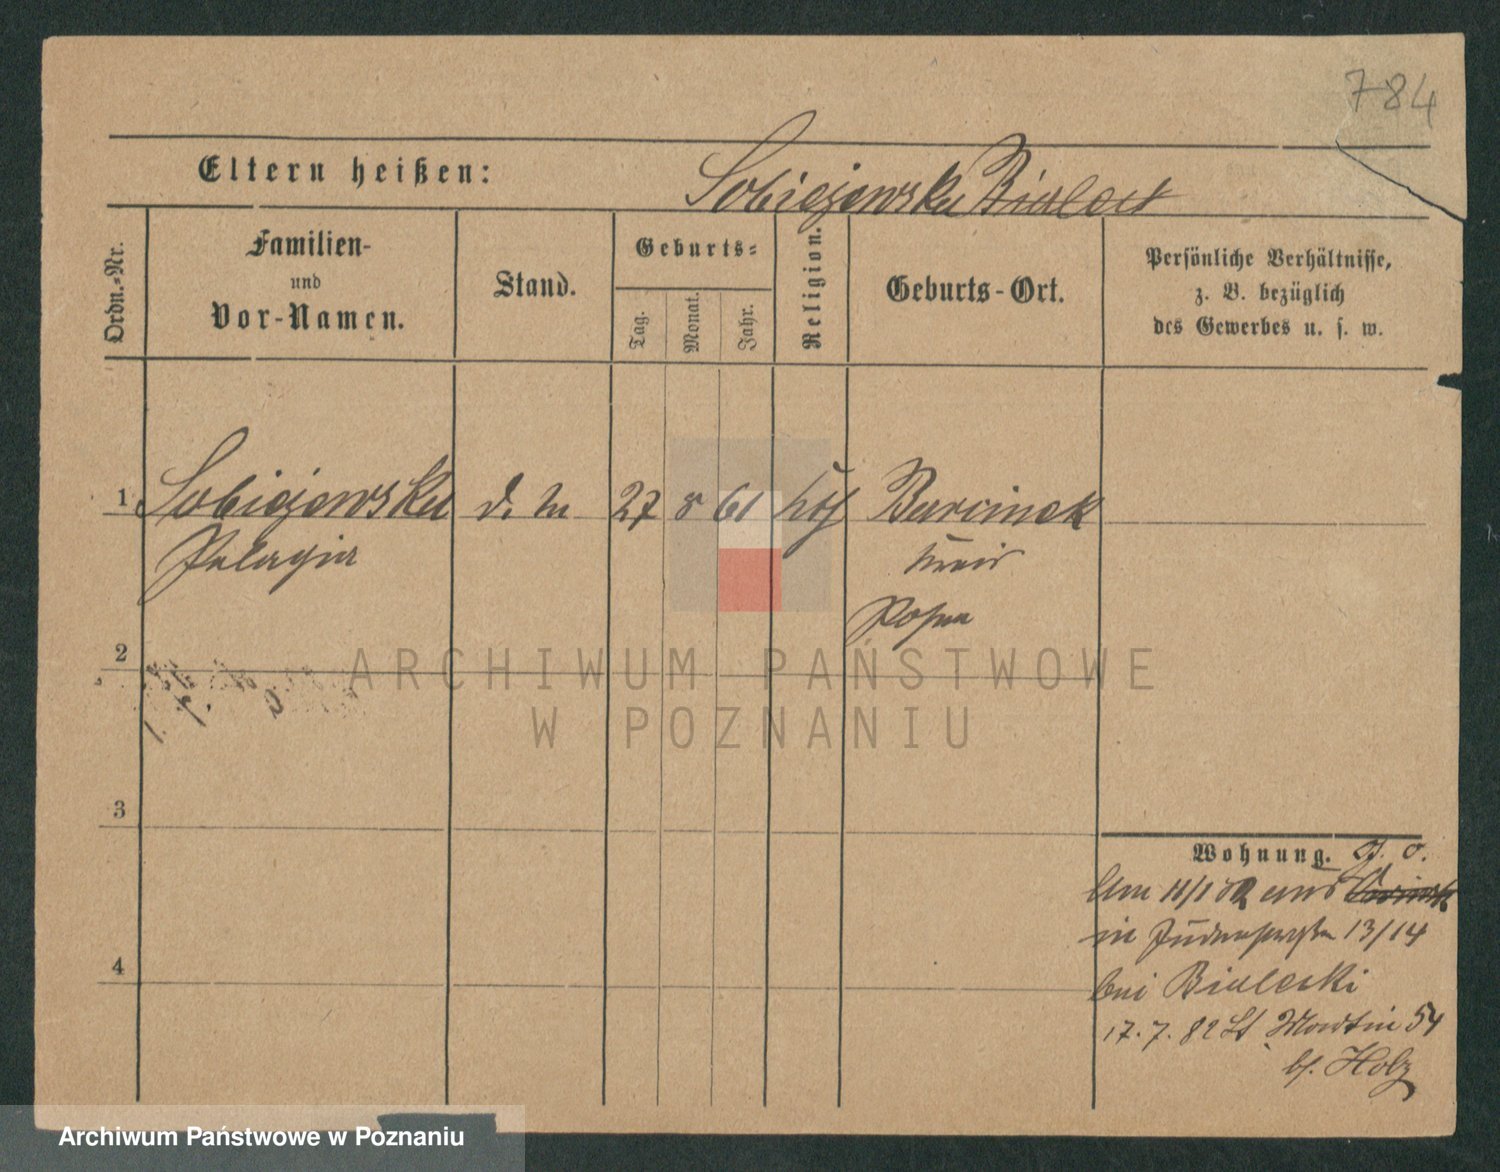 784
Eltern heißen: Sobiejewska Bialeck
Ordn.-Nr.
Familien-
und
Vor-Namen.
Stand.
Geburts-
Tag.
Monat.
Jahr.
Religion.
Geburts-Ort.
Persönliche Verhältnisse,
z. B. bezüglich
des Gewerbes u. s. w.
1 Sobiejewska d. M 27 8 61 kth Barcinek
Pelagia
Kreis
Posen
2
3
4
Wohnung. G. O.
Am 11/1 82 aus
in Judenstraße 13/14
bei Bialecki
17.7.82 St Martin 54
bei Holz
ARCHIWUM PAŃSTWOWE
W POZNANIU
Archiwum Państwowe w Poznaniu